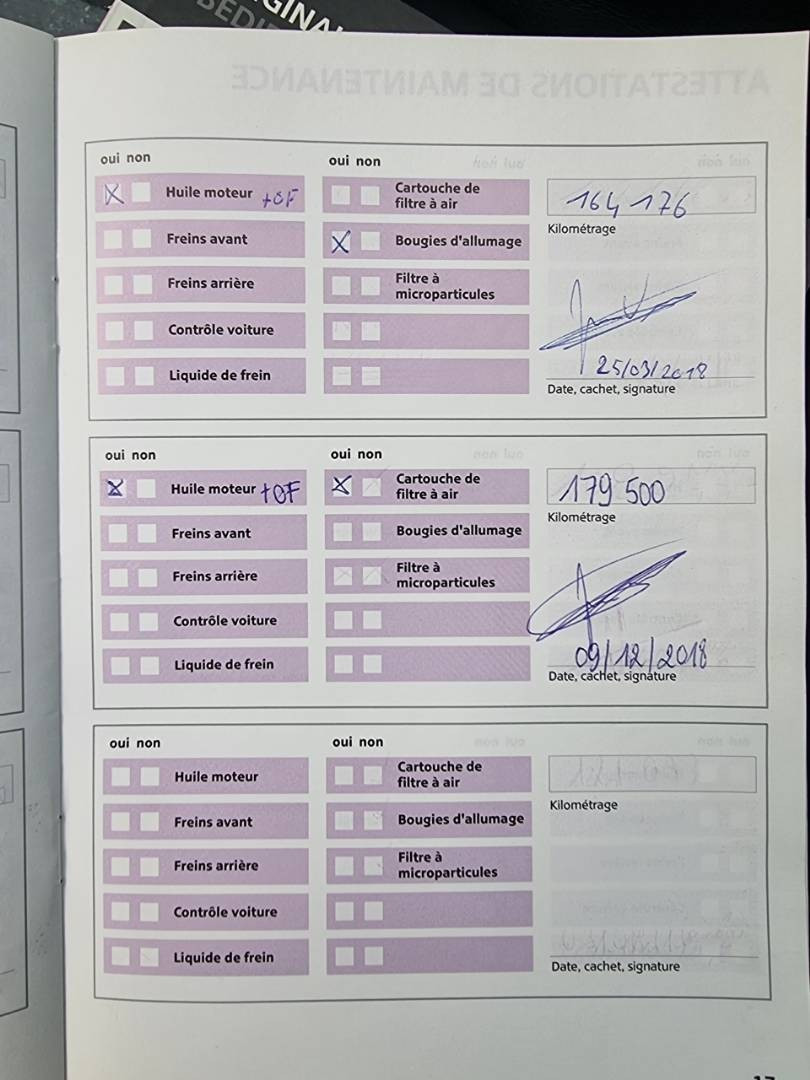 GINAL
BEDI
oui non
oui non
X Huile moteur + OF
Cartouche de
filtre à air
164 176
Kilométrage
Freins avant
X Bougies d'allumage
Freins arrière
Filtre à
microparticules
Contrôle voiture
Liquide de frein
25/03/2018
Date, cachet, signature
oui non
oui non
X Huile moteur + OF
X Cartouche de
filtre à air
179 500
Kilométrage
Freins avant
Bougies d'allumage
Freins arrière
Filtre à
microparticules
Contrôle voiture
Liquide de frein
09/12/2018
Date, cachet, signature
oui non
oui non
Huile moteur
Cartouche de
filtre à air
Kilométrage
Freins avant
Bougies d'allumage
Freins arrière
Filtre à
microparticules
Contrôle voiture
Liquide de frein
Date, cachet, signature